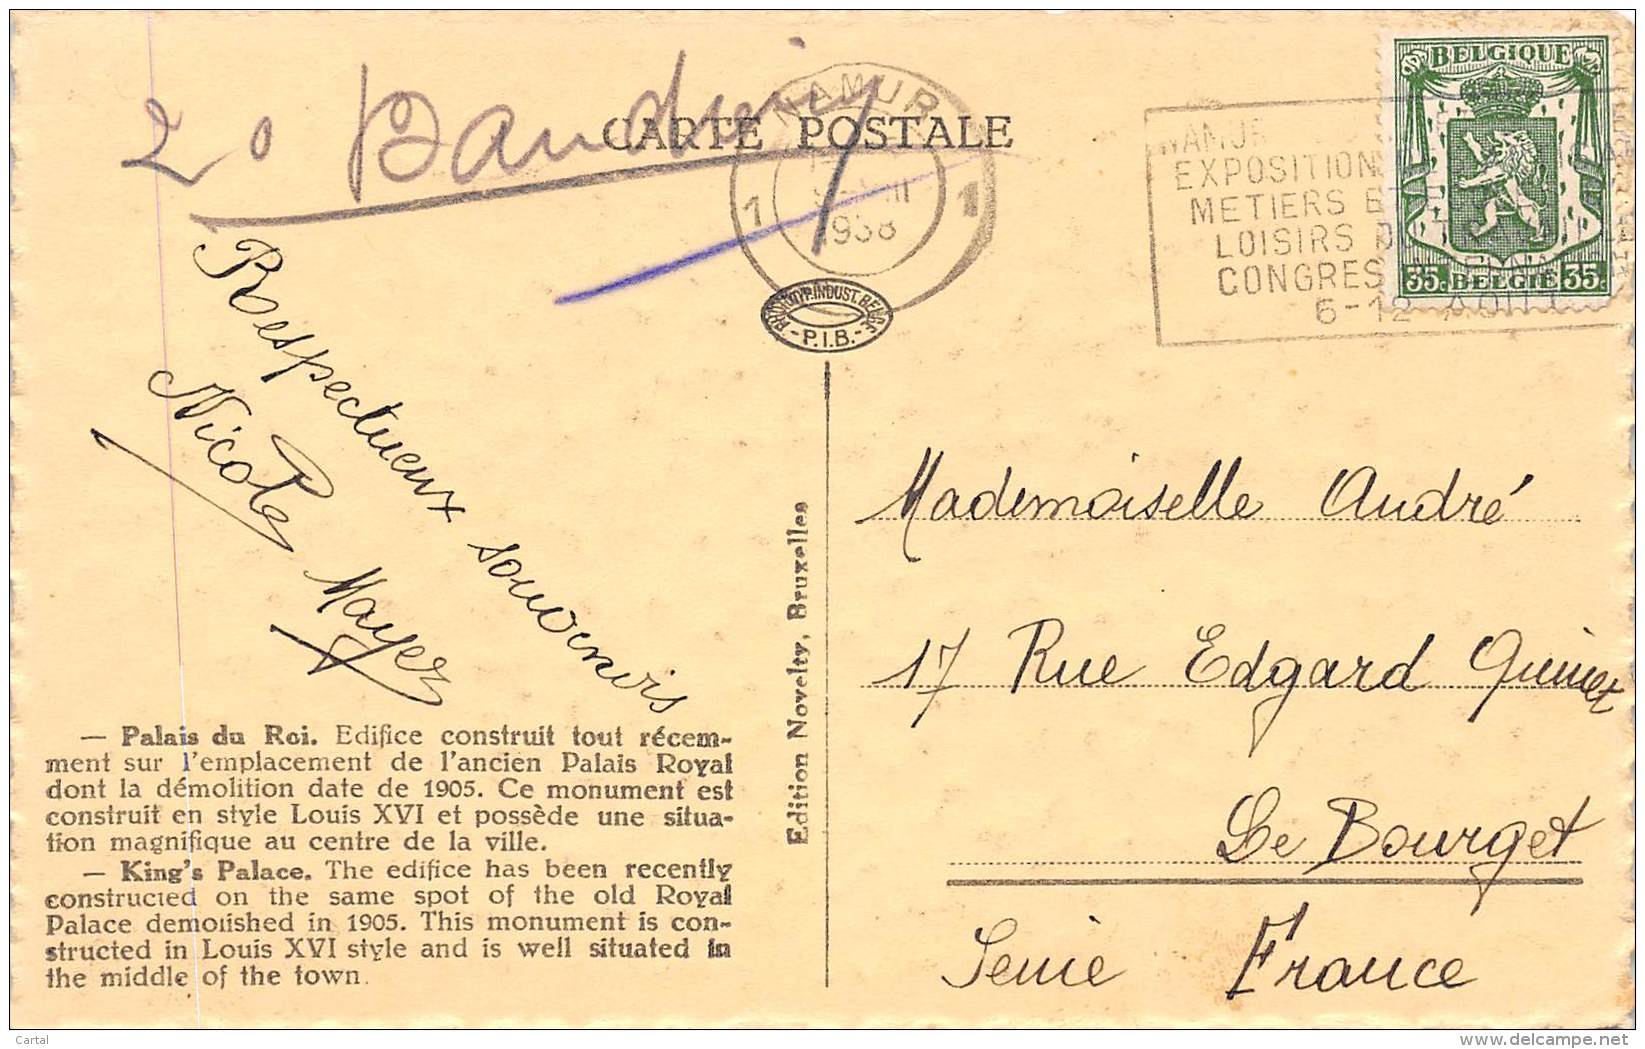 2° Baudriny
CARTE POSTALE
NAMUR
1 1
1938
NAMUR
EXPOSITION
METIERS ET
LOISIRS
CONGRES
6-12 AOUT
BELGIQUE
35c BELGIE 35c
PHOTOTYP. INDUST. BELGE
- P.I.B. -
Respectueux souvenirs
Nicole Mayer
Mademoiselle André
17 Rue Edgard Quinet
Le Bourget
Seine France
Edition Novelty, Bruxelles
— Palais du Roi. Edifice construit tout récem-
ment sur l'emplacement de l'ancien Palais Royal
dont la démolition date de 1905. Ce monument est
construit en style Louis XVI et possède une situa-
tion magnifique au centre de la ville.
— King's Palace. The edifice has been recently
constructed on the same spot of the old Royal
Palace demolished in 1905. This monument is con-
structed in Louis XVI style and is well situated in
the middle of the town.
Cartal
www.delcampe.net